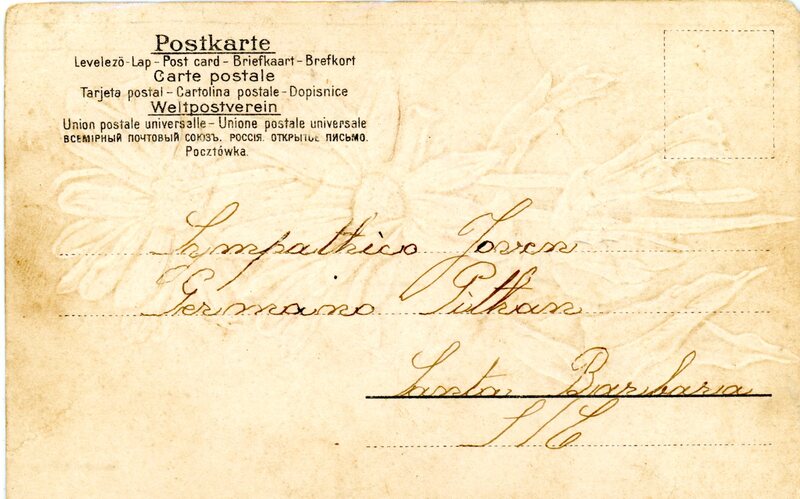 Postkarte
Levelező-Lap - Post card - Briefkaart - Brefkort
Carte postale
Tarjeta postal - Cartolina postale - Dopisnice
Weltpostverein
Union postale universelle - Unione postale universale
ВСЕМІРНЫЙ ПОЧТОВЫЙ СОЮЗЪ. РОССІЯ. ОТКРЫТОЕ ПИСЬМО.
Pocztówka.
Sympathico Joven
Germano Pithan
Santa Barbara
S/C